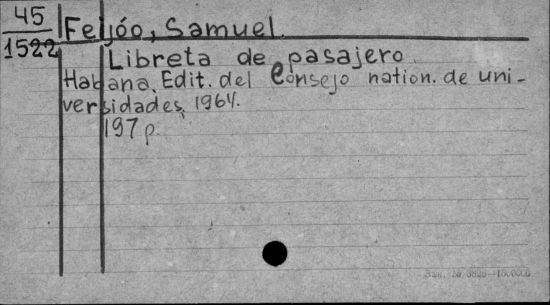 45
1522
Feijóo, Samuel.
Libreta de pasajero.
Habana, Edit. del Consejo nation. de uni-
versidades, 1964.
197 p.